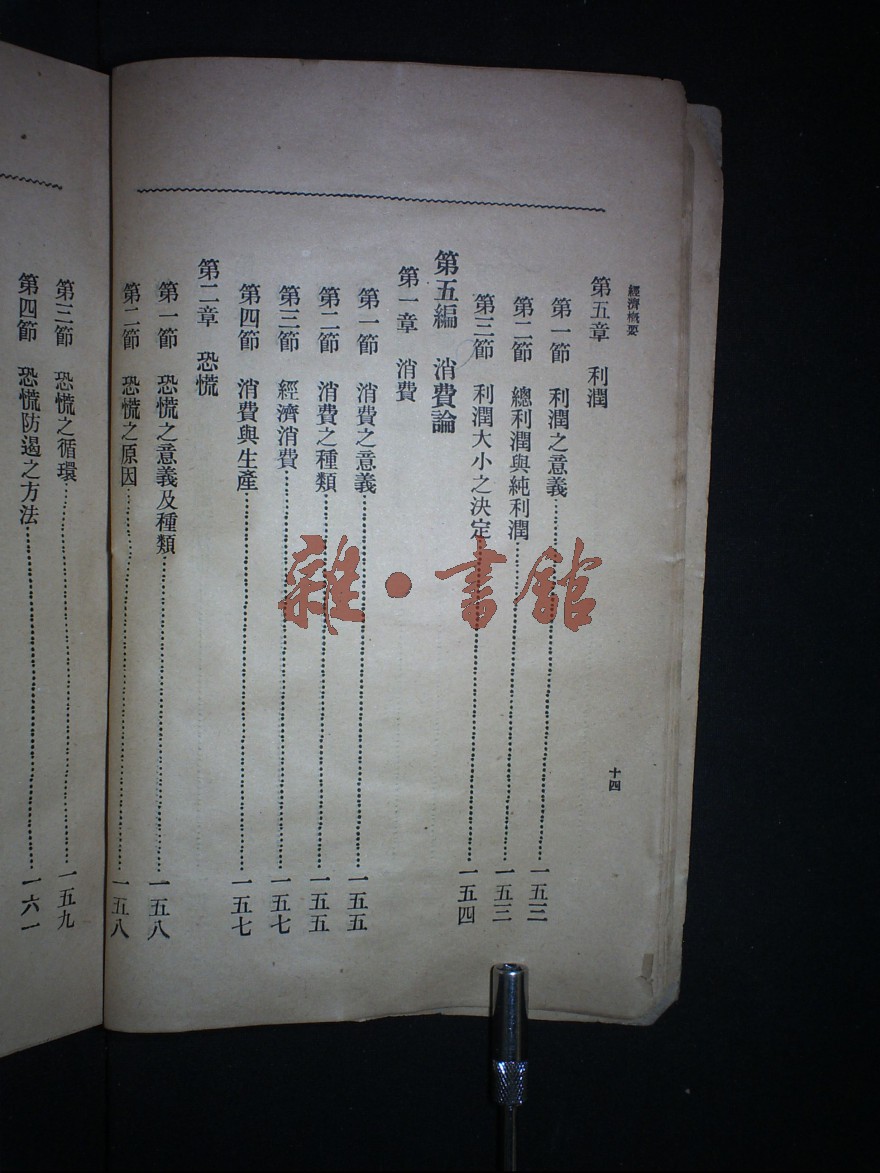 經濟概要
十四
第五章 利潤
第一節 利潤之意義 一五三
第二節 總利潤與純利潤 一五三
第三節 利潤大小之決定 一五四
第五編 消費論
第一章 消費
第一節 消費之意義 一五五
第二節 消費之種類 一五五
第三節 經濟消費 一五七
第四節 消費與生產 一五七
第二章 恐慌
第一節 恐慌之意義及種類 一五八
第二節 恐慌之原因 一五八
第三節 恐慌之循環 一五九
第四節 恐慌防遏之方法 一六一
雜·書館